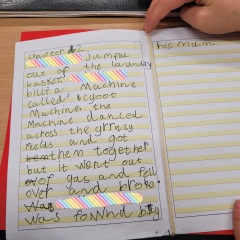 chapter 2
Jumped
out of the laundry
basket
bilt a Machine
called
Machine. the
Machine danced
across the grassy
feeds and got
them together
but it went out
of gas and fell
over and broke.
was fownd by
his mum.